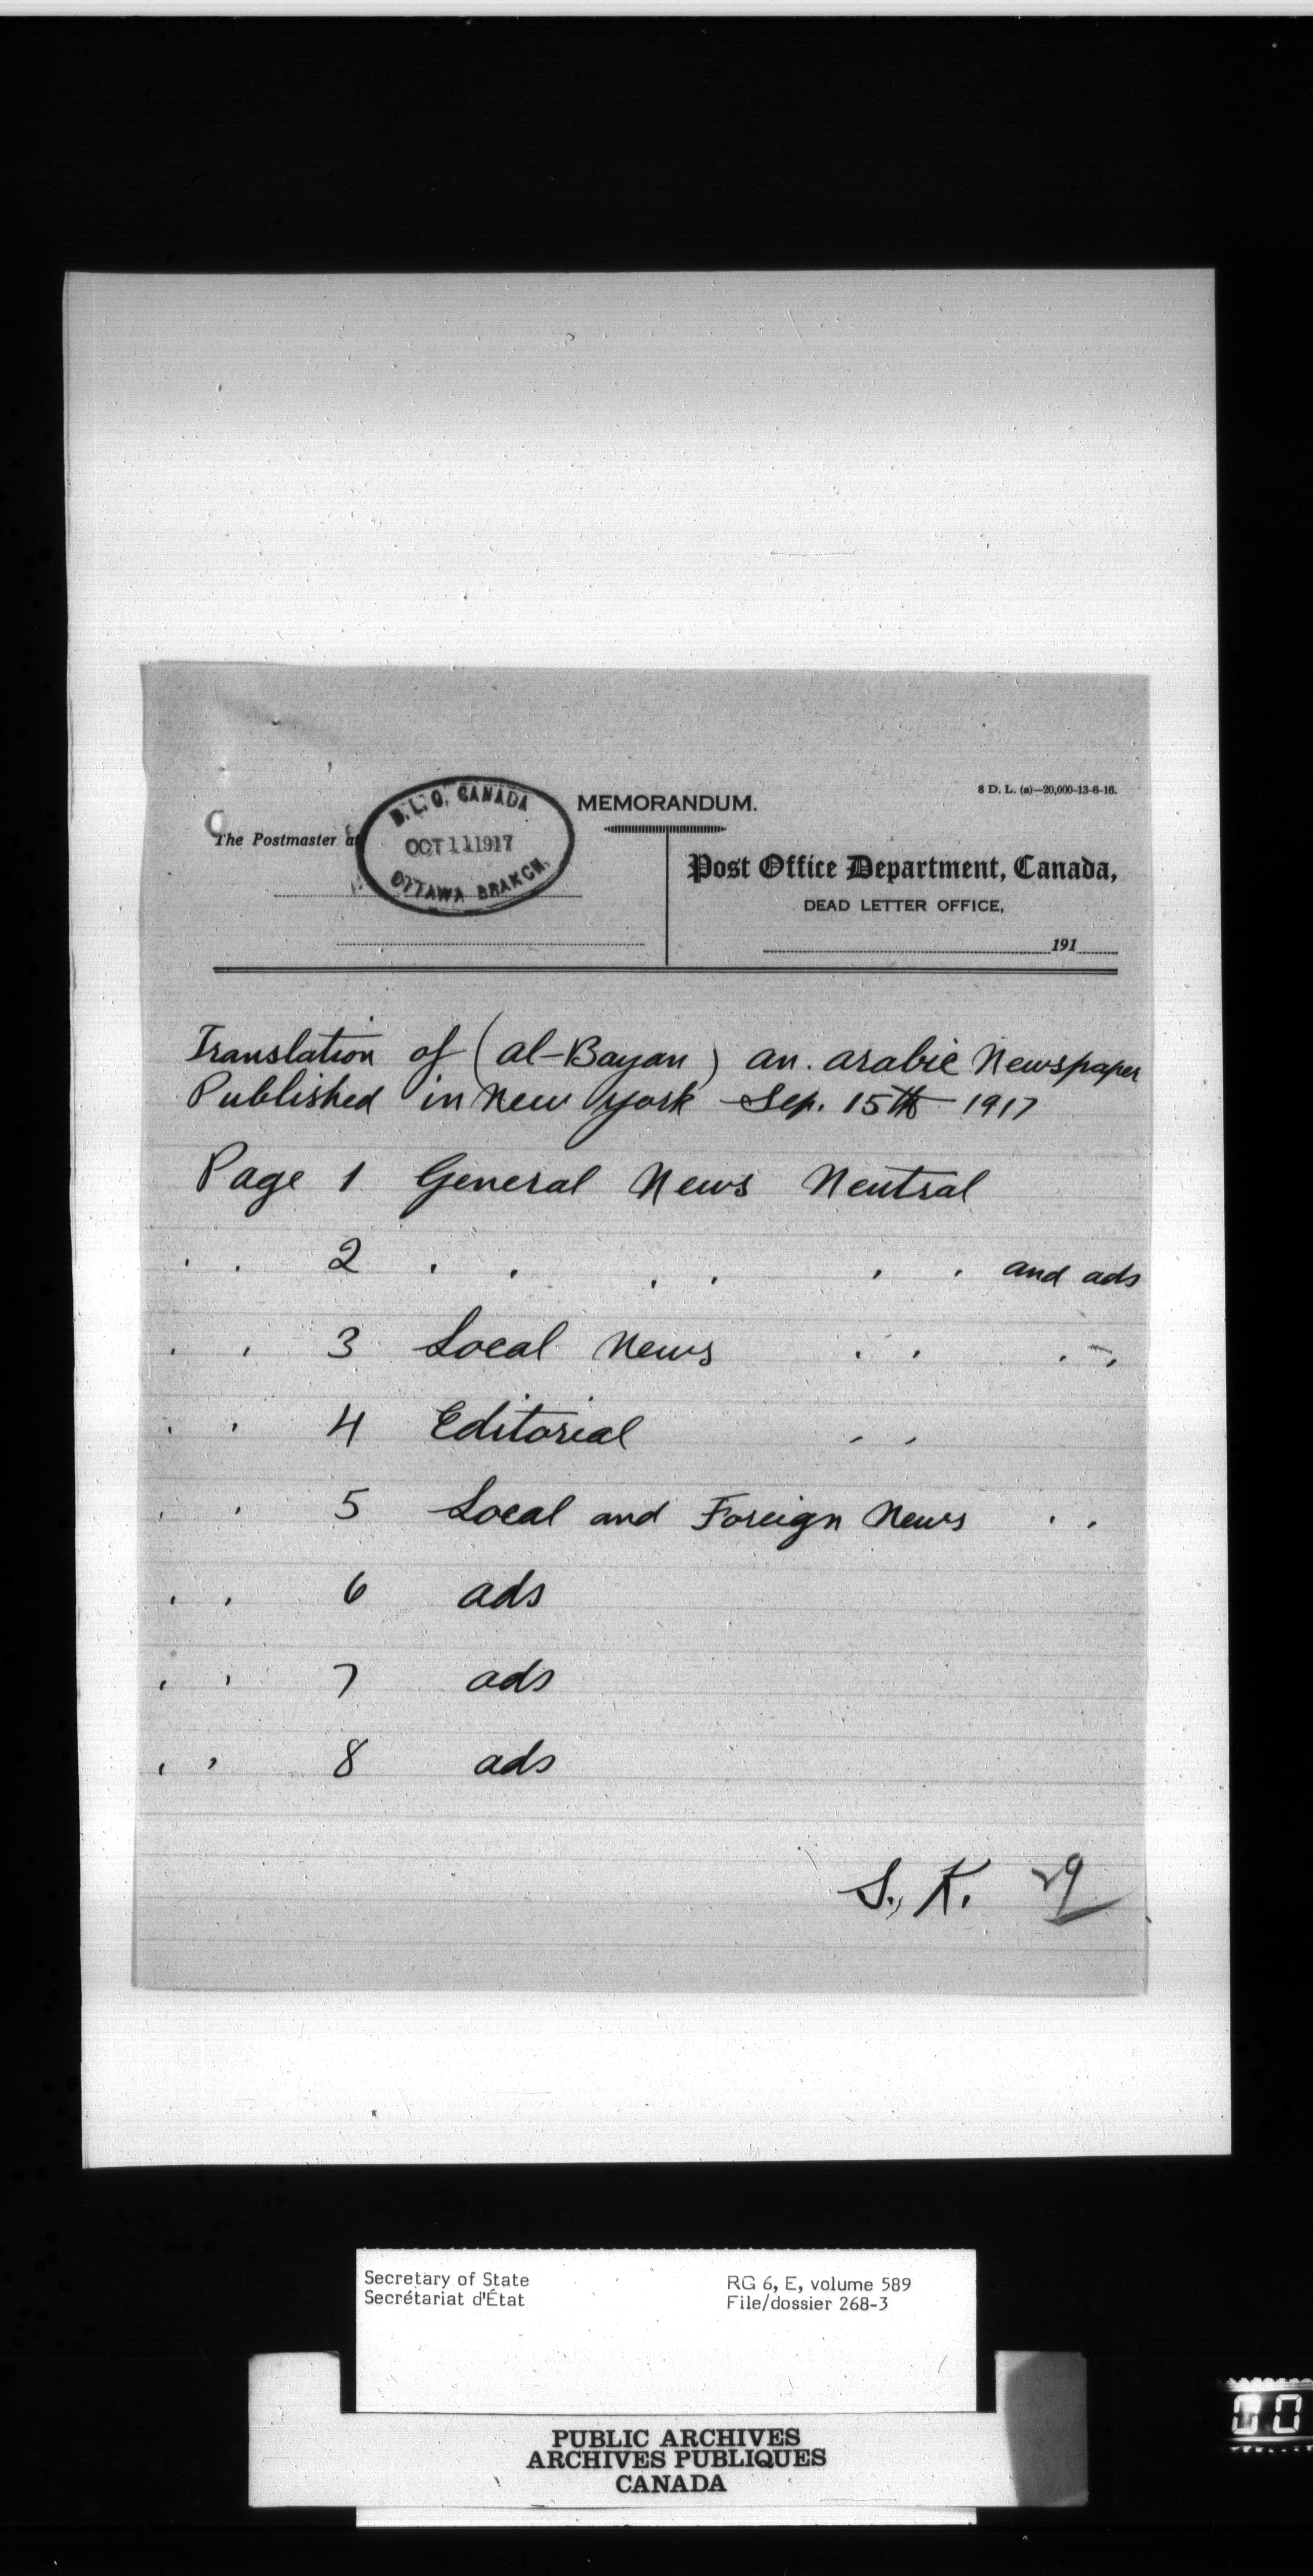 8 D. L. (a)—20,000-13-6-16.
MEMORANDUM.
The Postmaster at
D.L.O. CANADA
OCT 11 1917
OTTAWA BRANCH.
Post Office Department, Canada,
DEAD LETTER OFFICE,
191
Translation of (al-Bayan) an. arabic Newspaper
Published in New York Sep. 15th 1917
Page 1 General News Neutral
" 2 " " " and ads
" 3 Local News " "
" 4 Editorial "
" 5 Local and Foreign News "
" 6 ads
" 7 ads
" 8 ads
S. K.
Secretary of State
Secrétariat d'État
RG 6, E, volume 589
File/dossier 268-3
PUBLIC ARCHIVES
ARCHIVES PUBLIQUES
CANADA